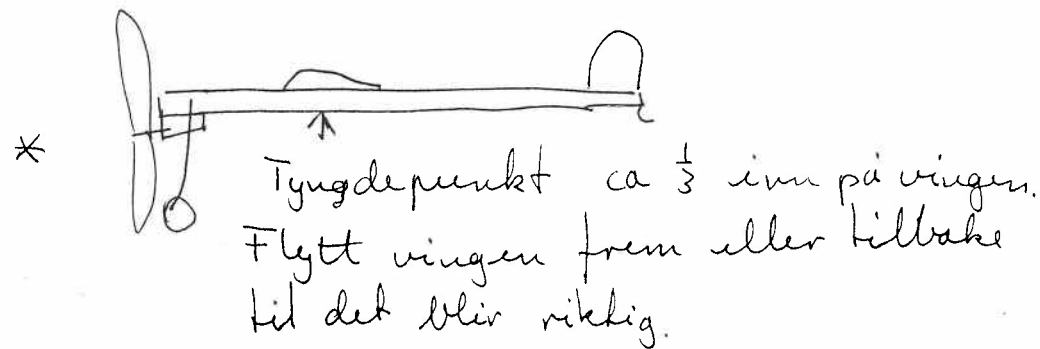 * Tyngdepunkt ca 1/3 inn på vingen.
Flytt vingen frem eller tilbake
til det blir riktig.